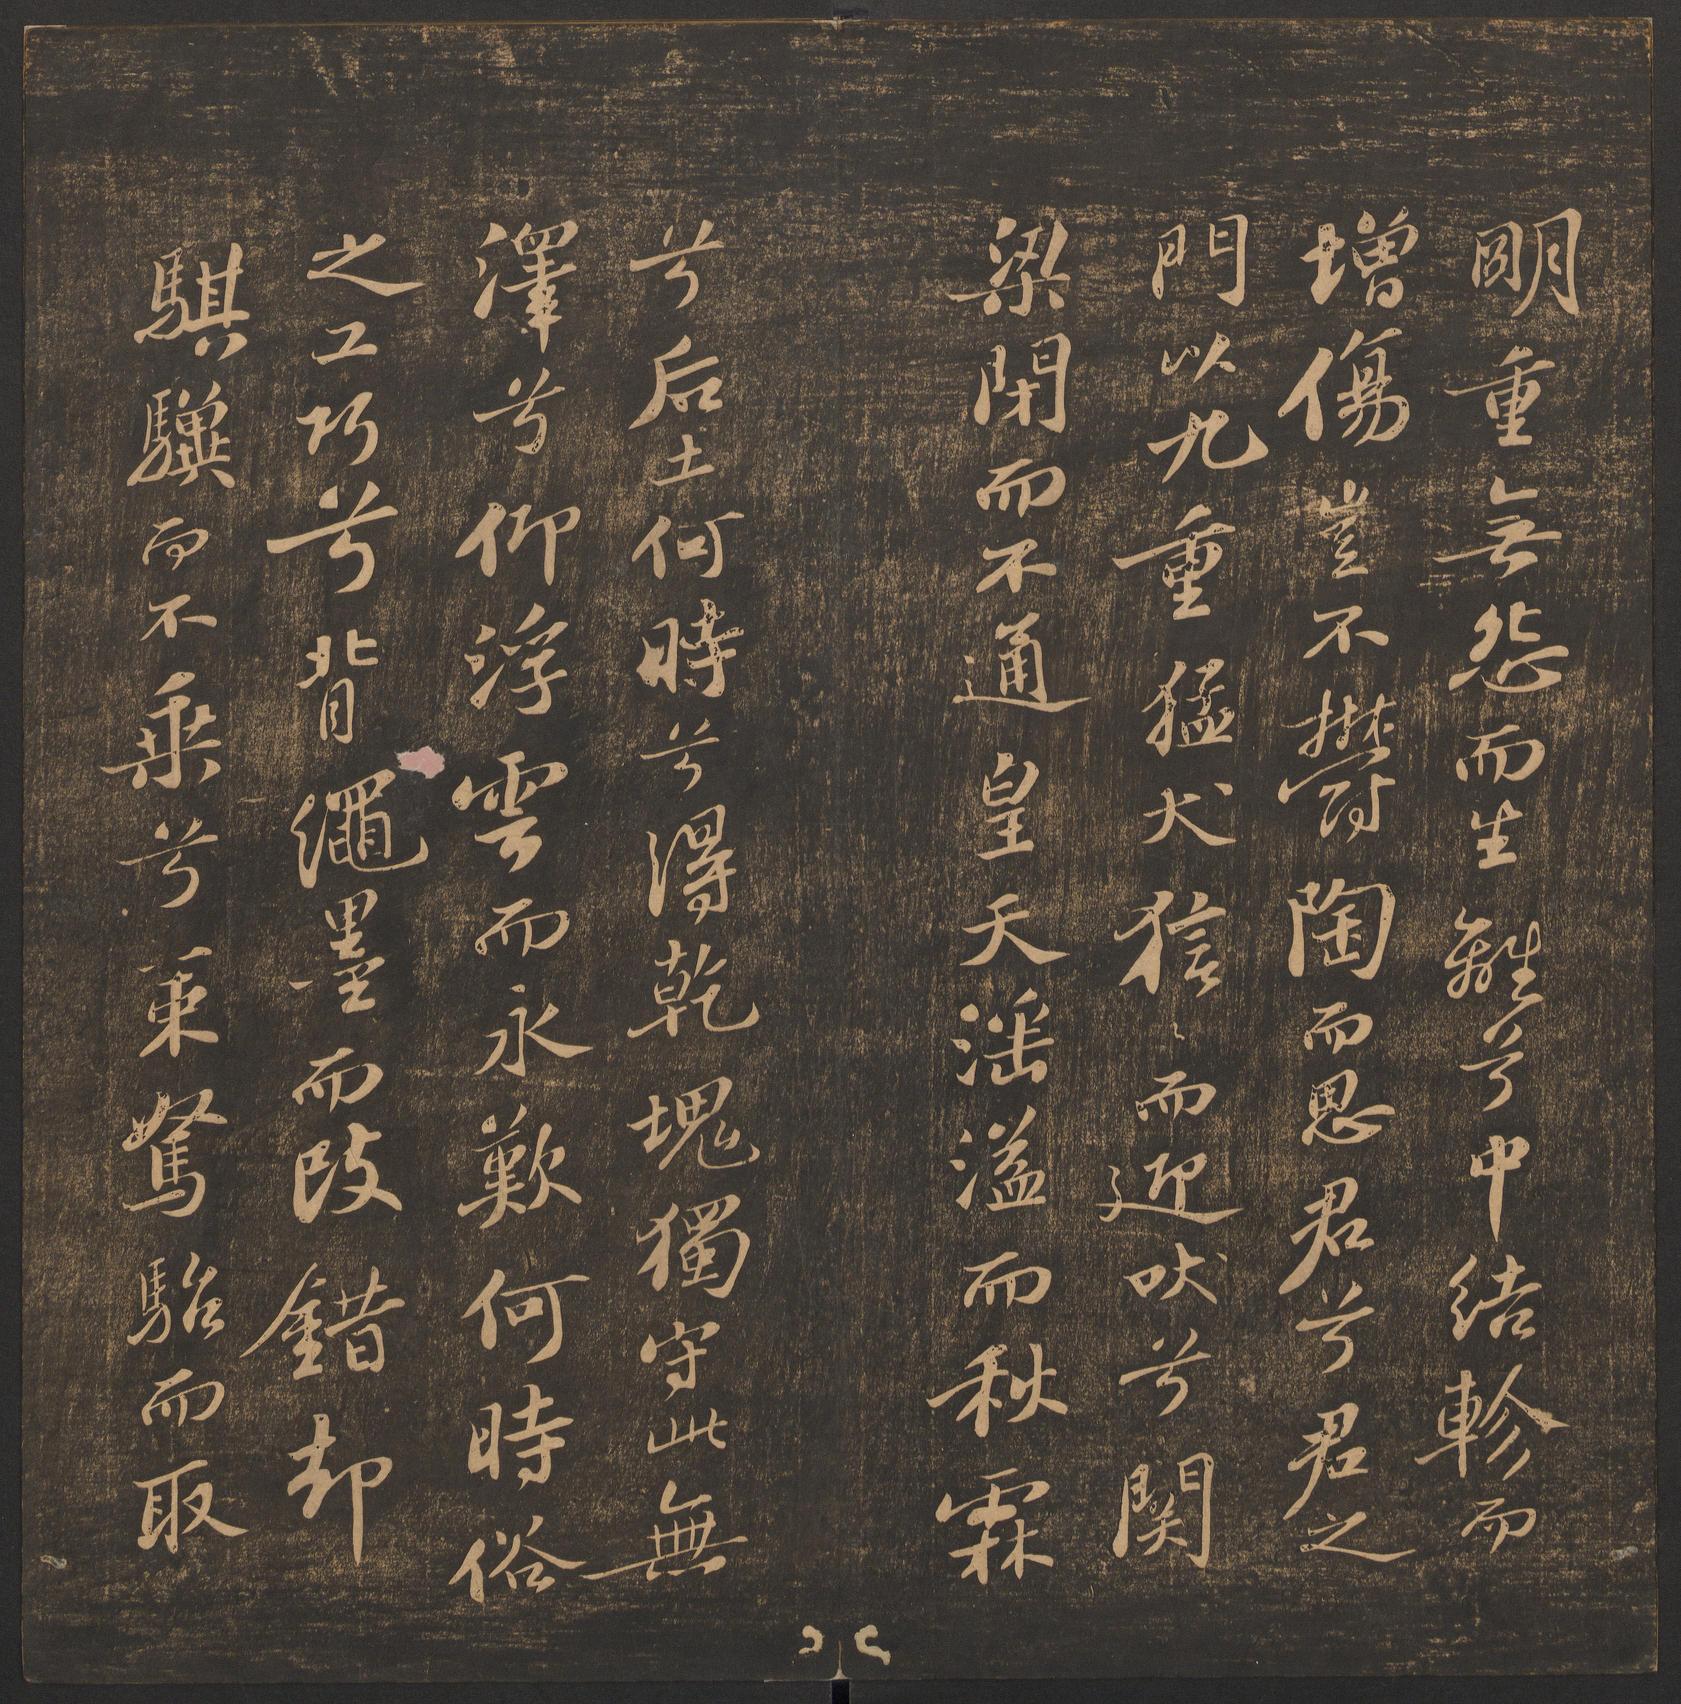 明重無怨而生離兮中結軫而
增傷豈不欝陶而思君兮君之
門以九重猛犬狺〻而迎吠兮関
梁閉而不通皇天淫溢而秋霖
兮后土何時兮得乾塊獨守此無
澤兮仰浮雲而永歎何時俗
之工巧兮背繩墨而改錯却
騏驥而不乗兮策駑駘而取